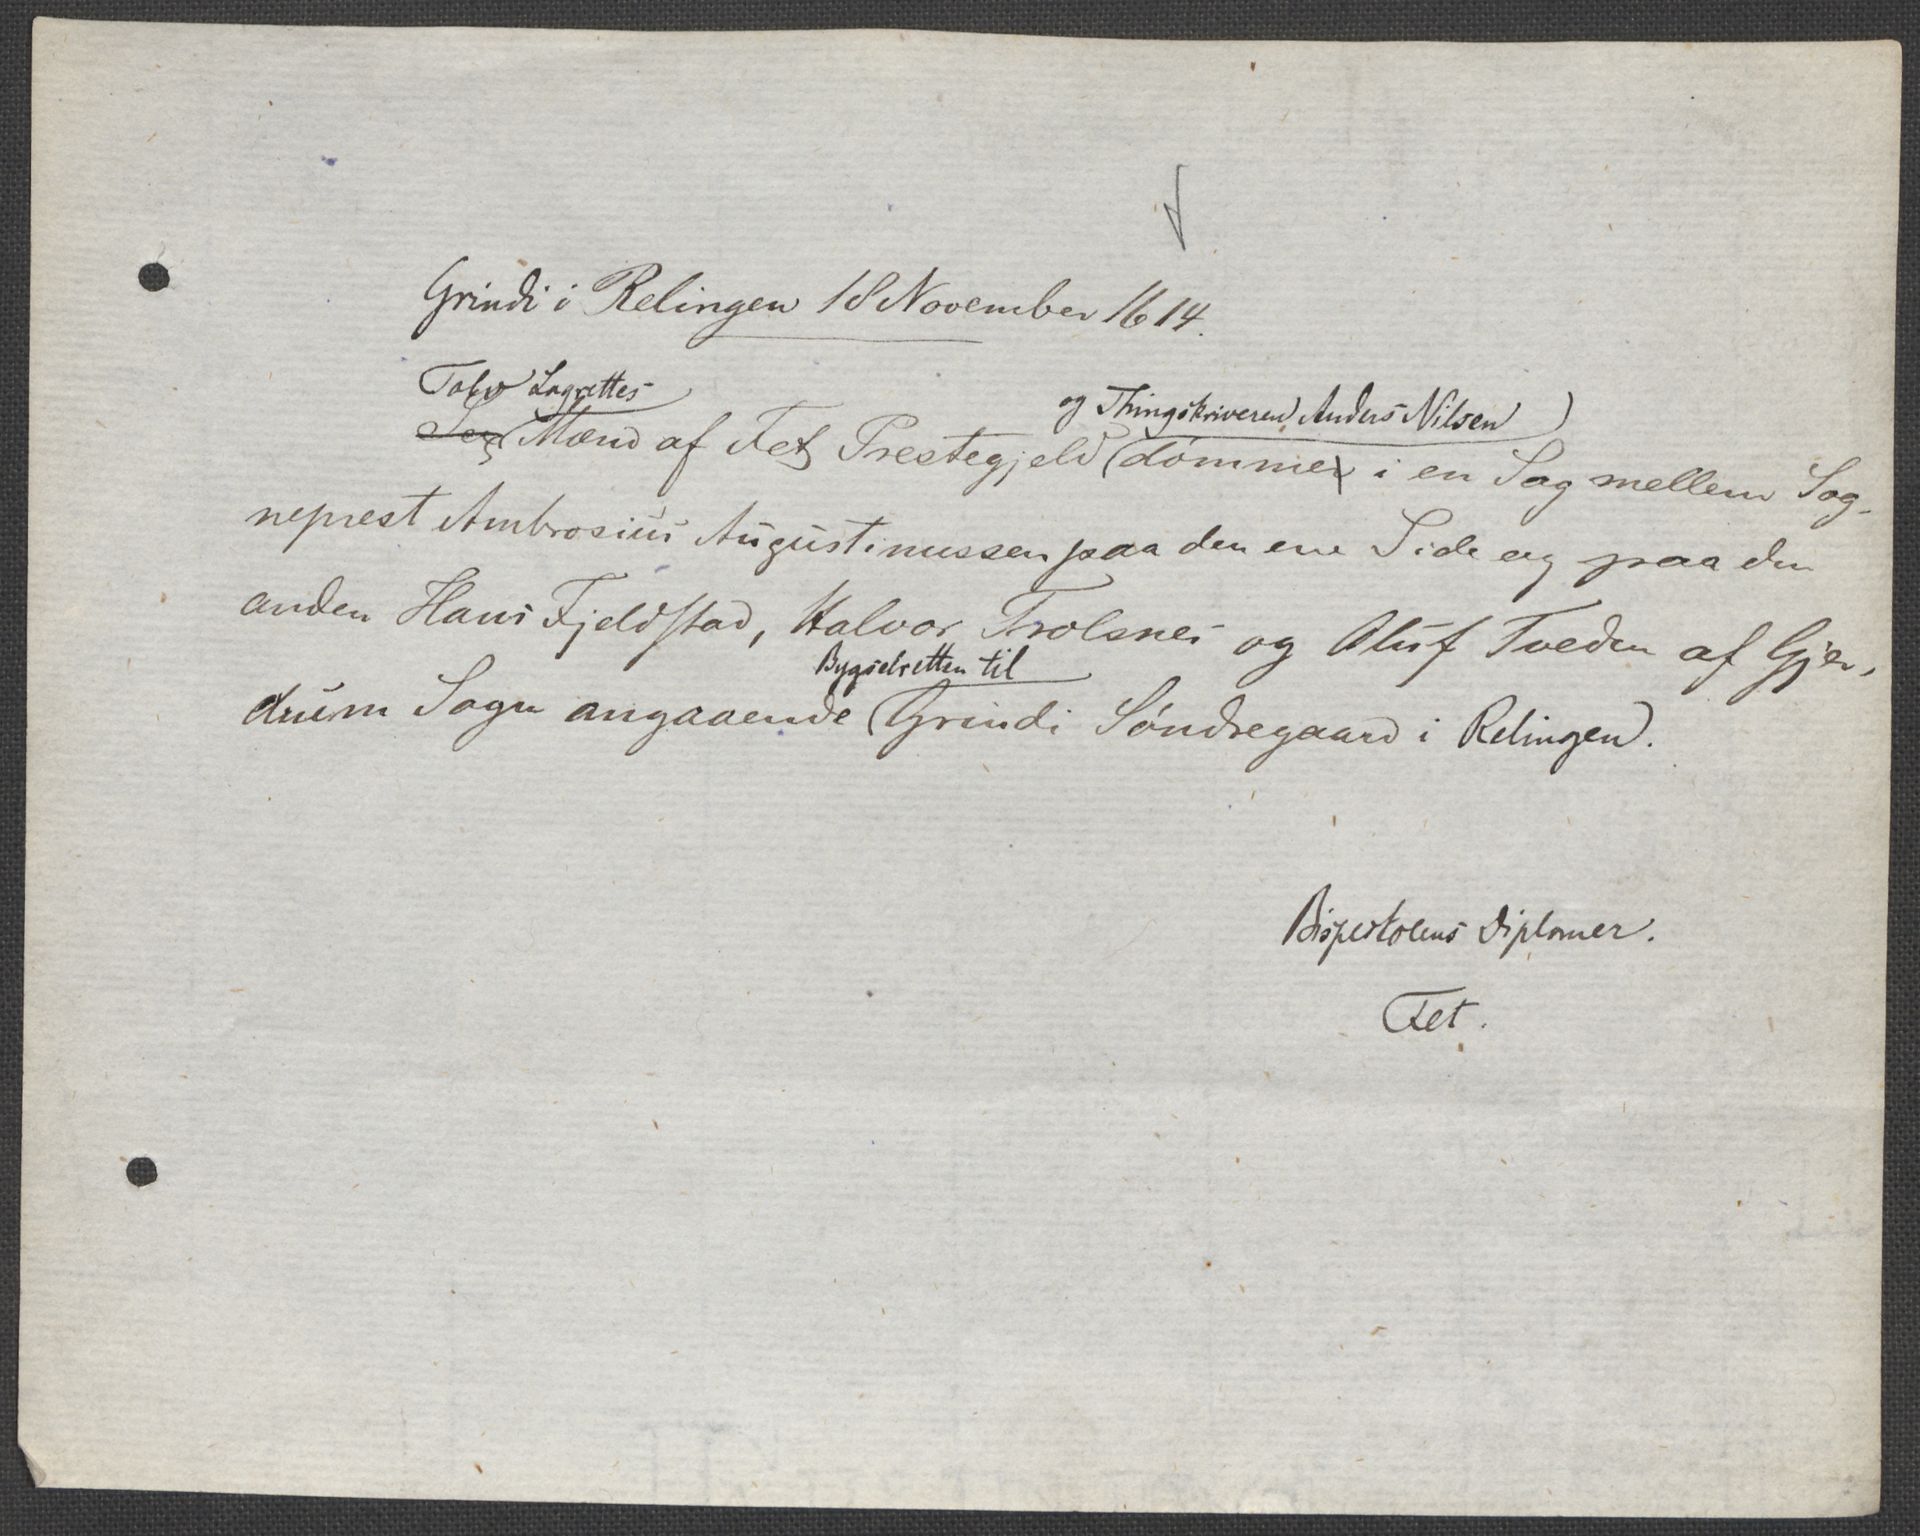 Grindi i Relingen 18 November 1614.
Tolv Lagrettes
og Thingskriveren Anders Nilsen)
Sex (Mænd af Fet Prestegjeld (dømmer i en Sag mellem Sog-
neprest Ambrosius Augustinussen paa den ene Side og paa den
anden Hans Fjeldstad, Halvor Trolsnes og Oluf Tveden af Gjer-
Bygselretten til
drum Sogn angaaende (Grindi Søndregaard i Relingen.
Bispestolens Diplomer.
Fet.